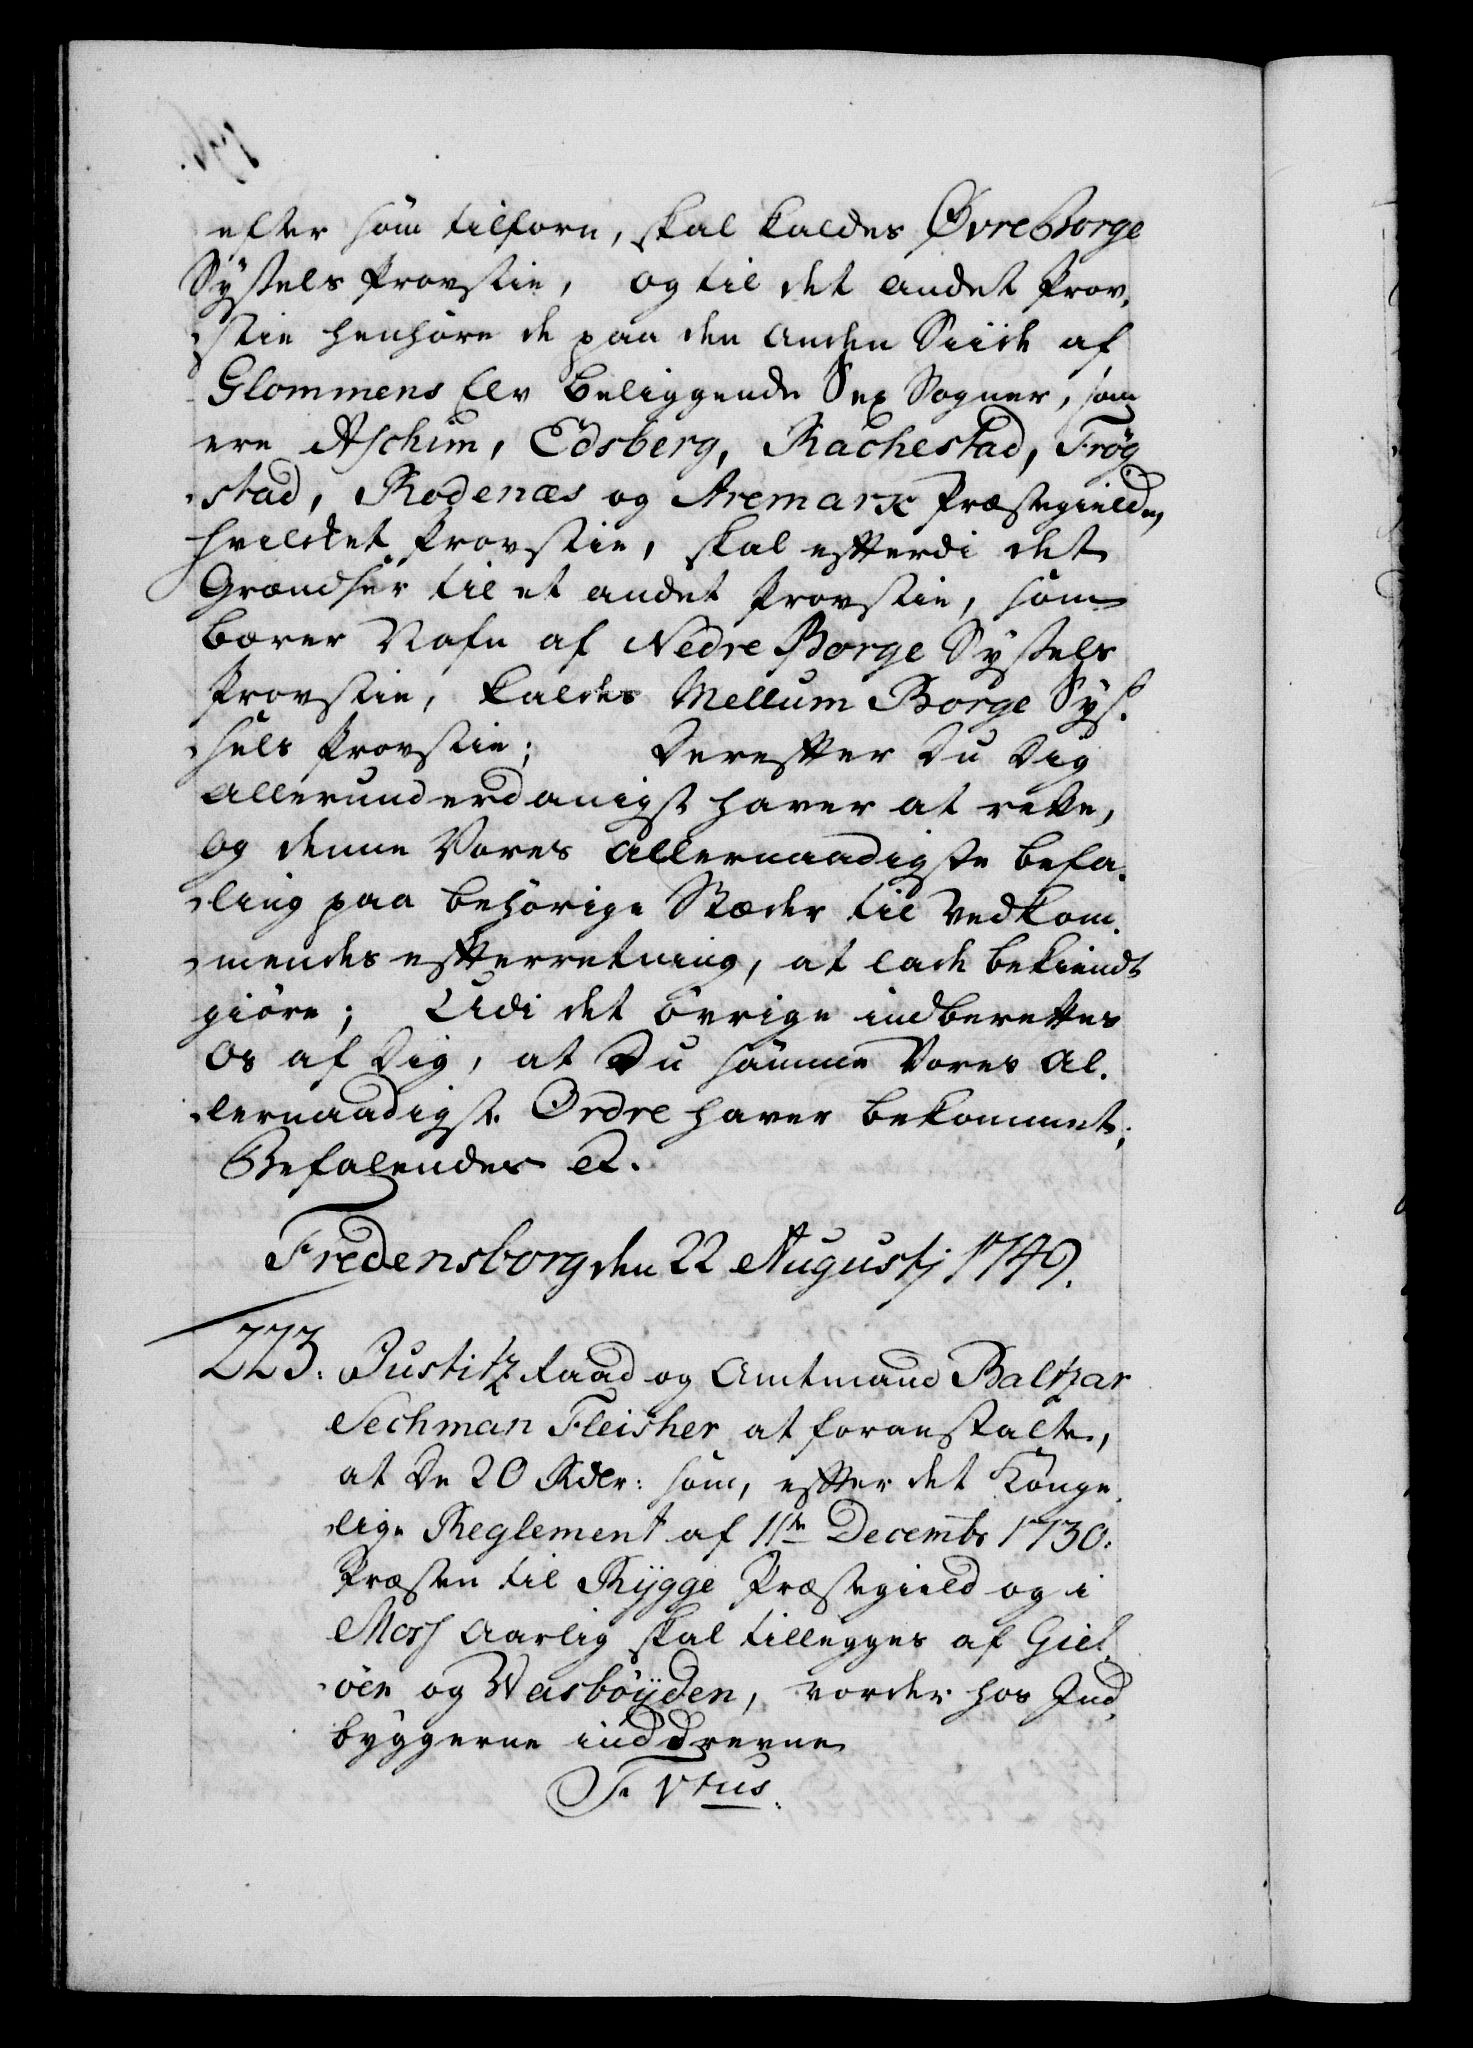 efter som tilforn, skal kaldes Øvre Borge
Syssels Provstie, og til det andet Prov-
stie henhøre de paa den anden Siide af
Glommens Elv beliggende Sex Sogner, som
ere Aschim, Edsberg, Rachestad, Frøg-
stad, Rodenæs og Aremark Præstegielde,
hvilcket Provstie, skal efterdi det
Grændser til et andet Provstie, som
bærer Nafn af Nedre Borge Syssels
Provstie, kaldes Mellum Borge Sys-
sels Provstie; Derefter Du Dig
allerunderdanigst haver at rette,
og denne Vores allernaadigste befa-
ling paa behørige Stæder til vedkom-
mendes efterretning, at lade bekiendt
giøre; Udi det øvrige indberettes
Os af Dig, at Du samme Vores al-
lernaadigste Ordre haver bekommet;
Befalendes etc.
Fredensborg den 22 Augustj 1749.
223. Justitz Raad og Amtmand Baltzar
Sechman Fleisher at foranstalte,
at De 20 Rdlr: som, efter det Konge-
lige Reglement af 11te Decembr 1730.
Præsten til Rygge Præstegield og i
Moss aarlig skal tillegges af Giel-
øen og Wasbøyden, vorder hos Ind-
byggerne inddrevne
T. Vtus.